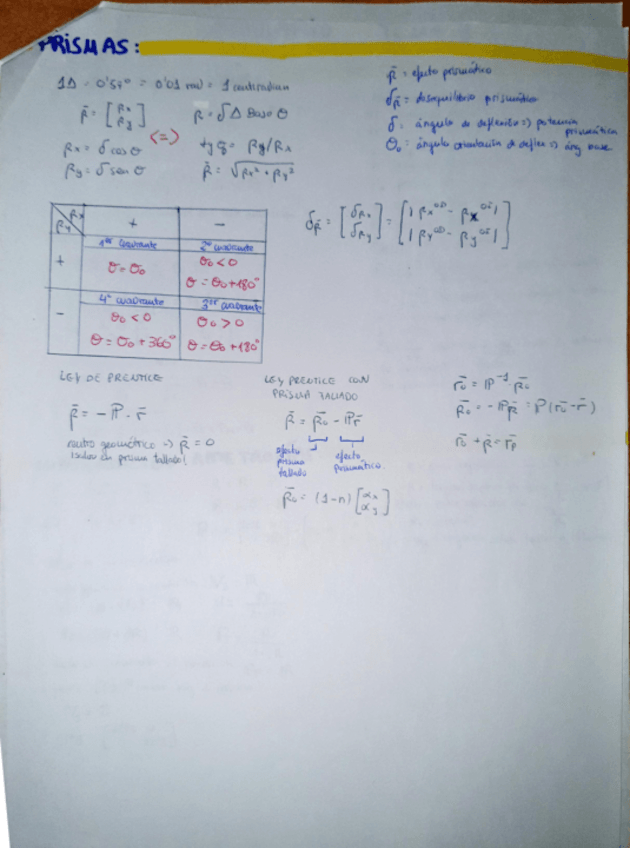 PRISMAS:
1Δ = 0'57° = 0'01 rad = 1 centiradian
p̄ = [px py]
p = δΔ Base θ
(=)
px = δ cos θ
py = δ sen θ
p̄ = √px² + py²
p̄ = efecto prismático
δp̄ = desequilibrio prismático
δ = ángulo de deflexión => potencia prismática
θ₀ = ángulo orientación de deflex => áng base
py px + -
+ 1er cuadrante 2º cuadrante
θ = θ₀ θ₀ < 0
θ = θ₀ + 180°
- 4º cuadrante 3er cuadrante
θ₀ < 0 θ₀ > 0
θ = θ₀ + 360° θ = θ₀ + 180°
δp̄ = [δpx δpy] = [|px^OD - px^OI| |py^OD - py^OI|]
LEY DE PRENTICE
p̄ = - ℙ · r̄
centro geométrico => p̄ = 0
prisma tallado
LEY PRENTICE CON
PRISMA TALLADO
p̄ = p̄₀ - ℙr̄
efecto
prisma
tallado
efecto
prismático.
p̄₀ = (1-n) [αx αy]
r̄₀ = ℙ⁻¹ · p̄₀